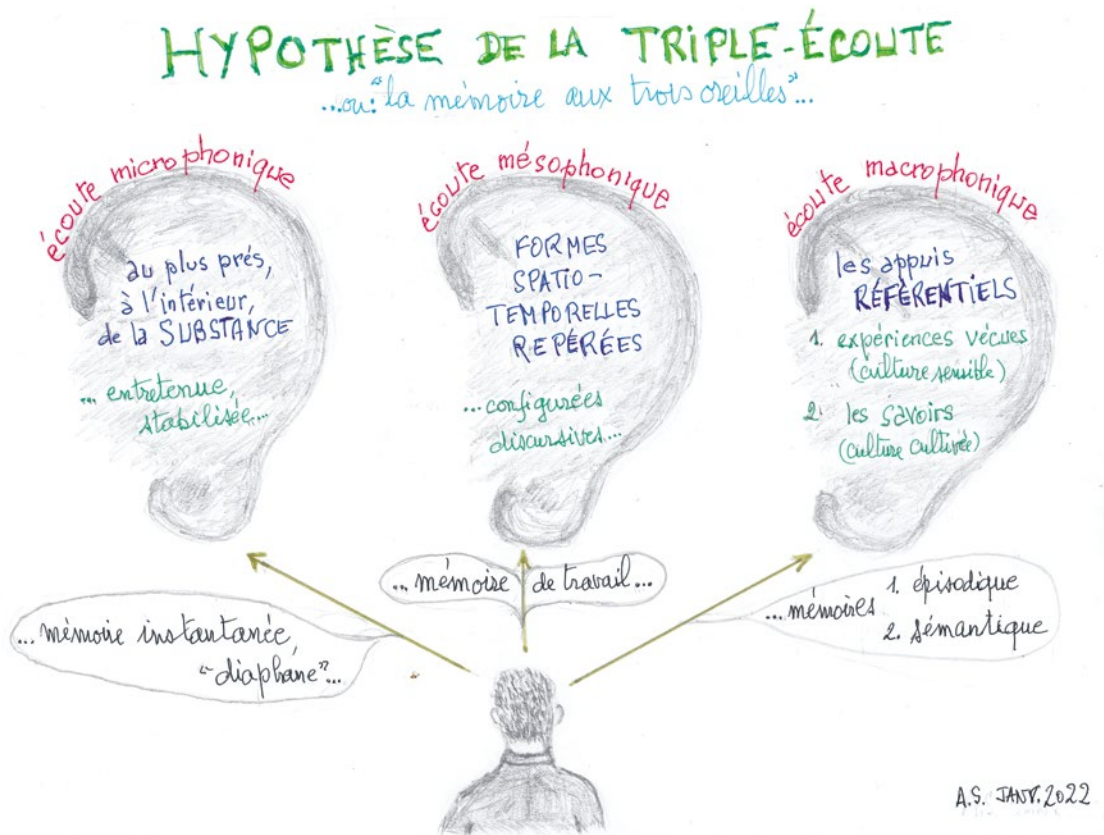 HYPOTHÈSE DE LA TRIPLE-ÉCOUTE
...ou: "la mémoire aux trois oreilles"...
écoute microphonique
au plus prés,
à l'intérieur,
de la SUBSTANCE
... entretenue,
stabilisée...
écoute mésophonique
FORMES
SPATIO-
TEMPORELLES
REPÉRÉES
...configurées
discursives...
écoute macrophonique
les appuis
RÉFÉRENTIELS
1. expériences vécues
(culture sensible)
2. les savoirs
(culture cultivée)
... mémoire instantanée,
"diaphane"...
... mémoire de travail...
...mémoires 1. épisodique
2. sémantique
A.S. JANV. 2022